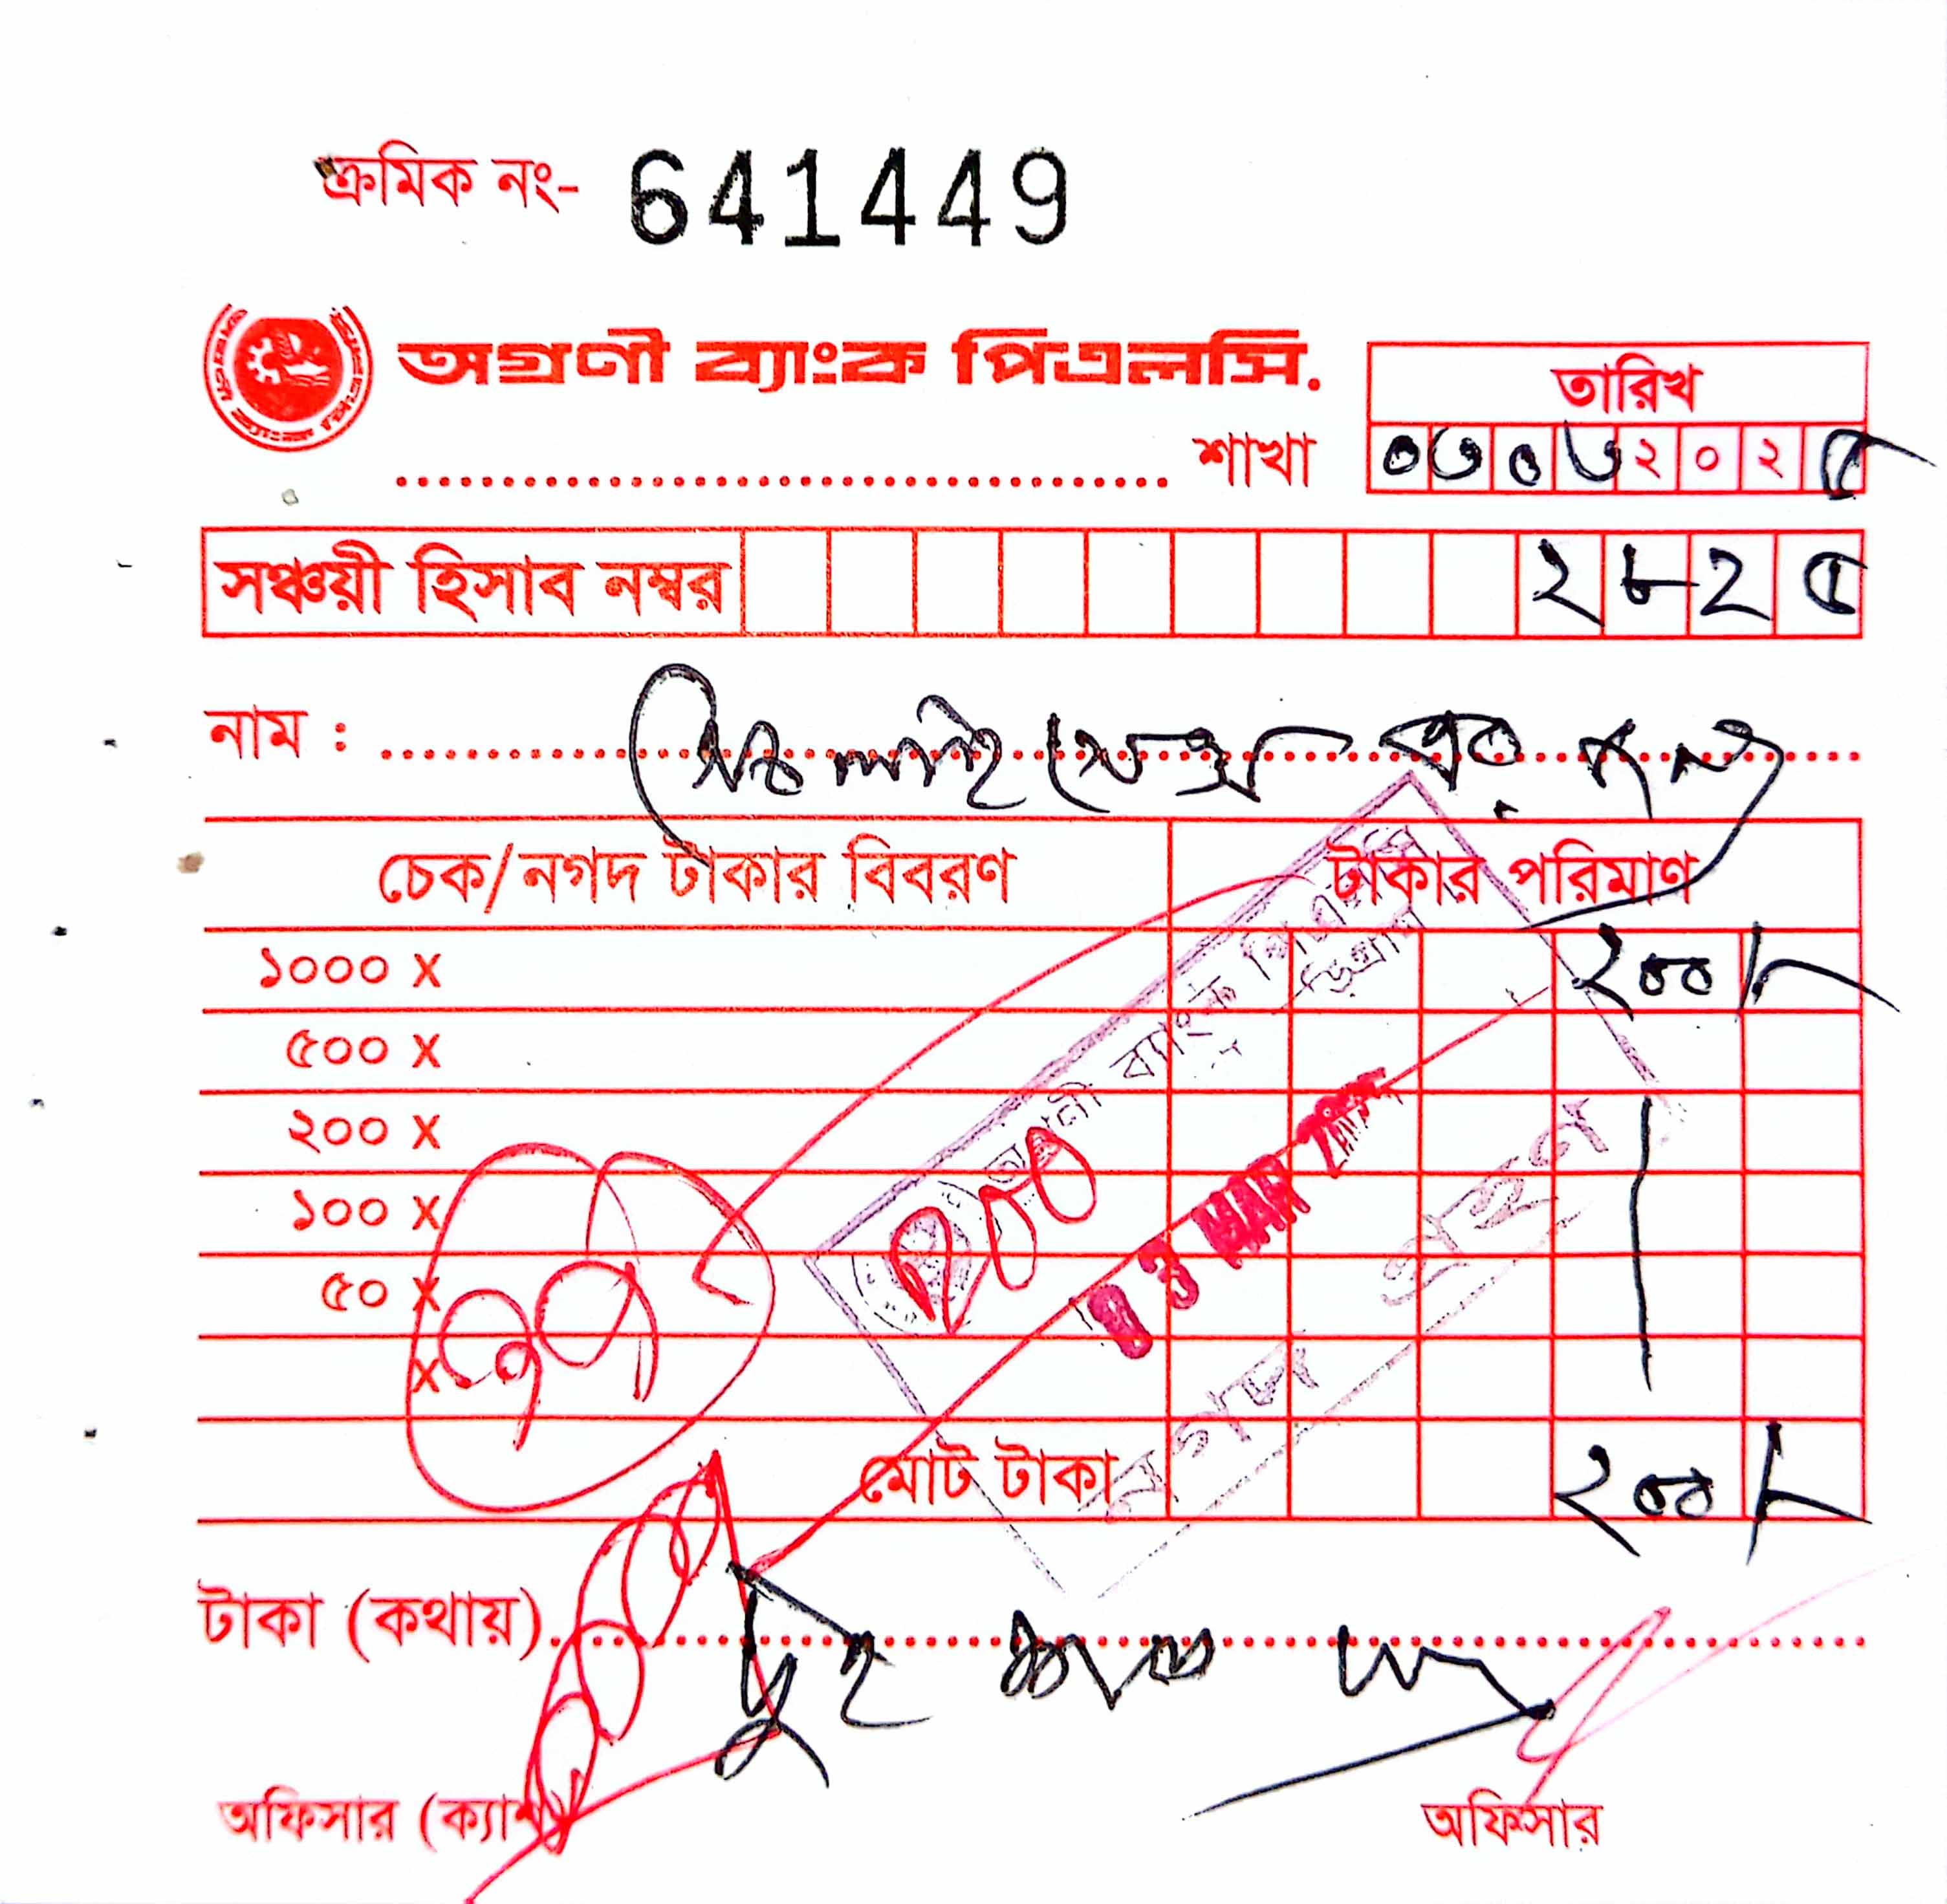 ক্রমিক নং- 641449
অগ্রণী ব্যাংক পিএলসি.
তারিখ
শাখা
০৩০৩২০২৫
সঞ্চয়ী হিসাব নম্বর ২৮২৫
নাম :
চেক/নগদ টাকার বিবরণ টাকার পরিমাণ
১০০০ X ২০০
৫০০ X
২০০ X
১০০ X
৫০ X
X
২০০
03 MAR
অগ্রণী ব্যাংক
নগদ গ্রহণ
মোট টাকা ২০০
টাকা (কথায়) দুই শত
অফিসার (ক্যাশ) অফিসার